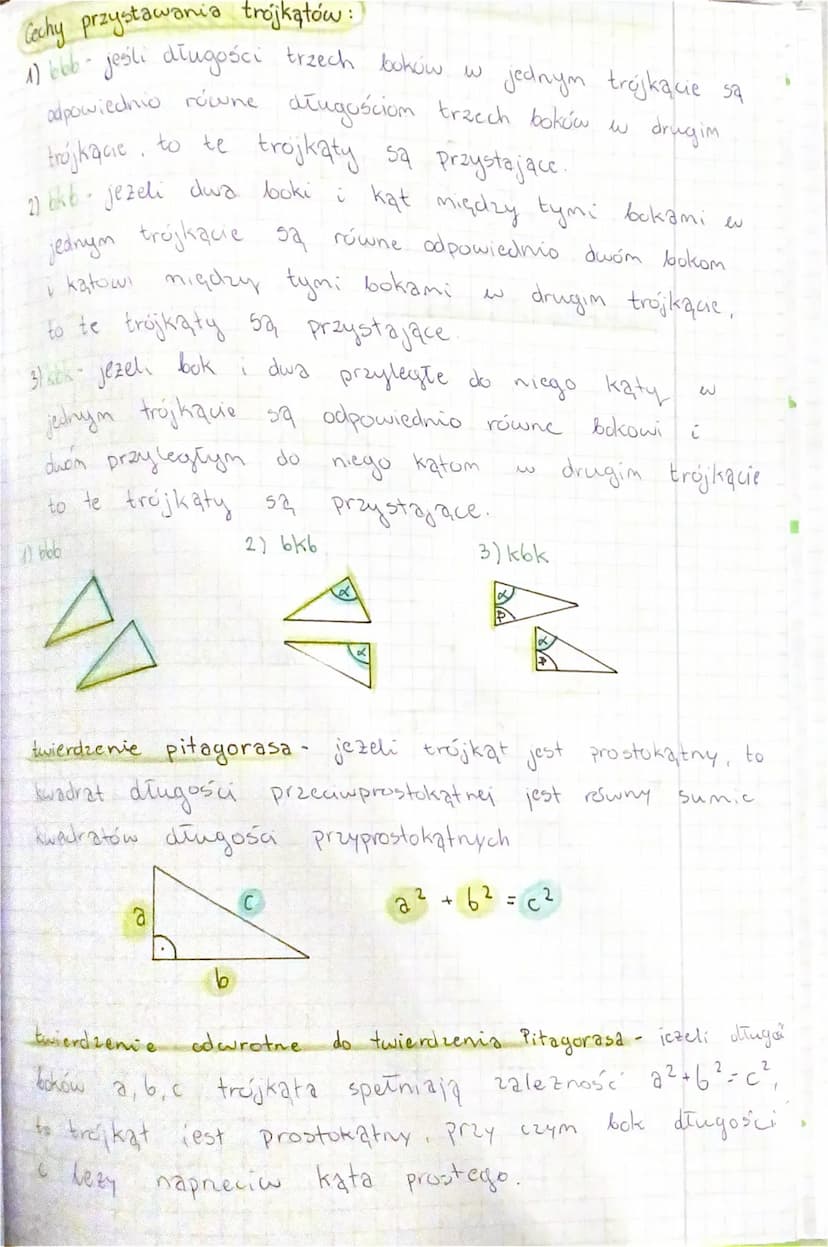 Cechy przystawania trójkątów:
1) bbb - jeśli długości trzech boków w jednym trójkącie są
odpowiednio równe długościom trzech boków w drugim
trójkącie, to te trójkąty są przystające.
2) bkb - jeżeli dwa boki i kąt między tymi bokami w
jednym trójkącie są równe odpowiednio dwóm bokom
i kątowi między tymi bokami w drugim trójkącie,
to te trójkąty są przystające.
3) kbk - jeżeli bok i dwa przyległe do niego kąty w
jednym trójkącie są odpowiednio równe bokowi i
dwóm przyległym do niego kątom w drugim trójkącie
to te trójkąty są przystające.
1) bbb 2) bkb 3) kbk
α α
β
α α
β
twierdzenie pitagorasa - jeżeli trójkąt jest prostokątny, to
kwadrat długości przeciwprostokątnej jest równy sumie
kwadratów długości przyprostokątnych
a c a² + b² = c²
b
twierdzenie odwrotne do twierdzenia Pitagorasa - jeżeli długości
boków a, b, c trójkąta spełniają zależność a² + b² = c²,
to trójkąt jest prostokątny, przy czym bok długości
c leży naprzeciw kąta prostego.